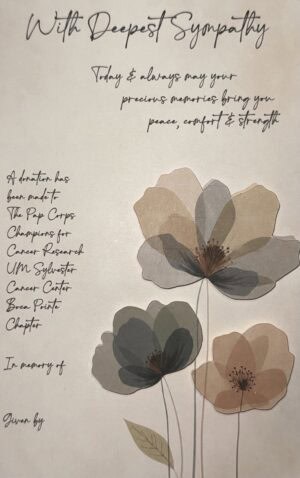 With Deepest Sympathy
Today & always may your
precious memories bring you
peace, comfort & strength
A donation has
been made to
The Pap Corps
Champions for
Cancer Research
UM Sylvester
Cancer Center
Boca Pointe
Chapter
In memory of
Given by